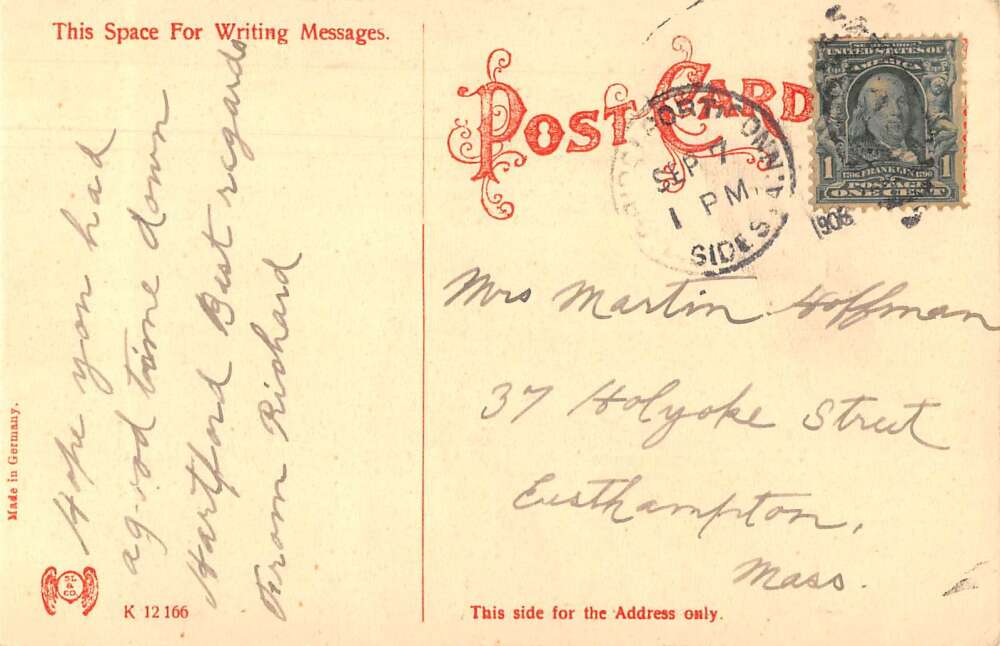 This Space For Writing Messages.
POST CARD
UNITED STATES OF
AMERICA
1 1
FRANKLIN
POSTAGE
ONE CENT
SEP 17
1 PM
SIDES
1906
Hope you had
a good time down
Hartford Best regards
From Richard
Mrs Martin Hoffman
37 Holyoke Street
Easthampton,
Mass.
Made in Germany.
SL
&
CO.
K 12166
This side for the Address only.